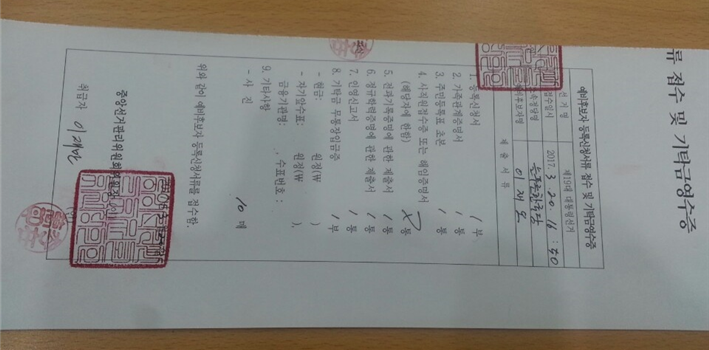 류 접수 및 기탁금영수증
예비후보자 등록신청서류 접수 및 기탁금영수증
선 거 명 제19대 대통령선거
접수일시 2017. 3. 20. 16 : 40
소속정당명 늘푸른한국당
예비후보자명 이재오
제 출 서 류
1. 등록신청서 1 부
2. 가족관계증명서 1 통
3. 주민등록표 초본 1 통
4. 사직원접수증 또는 해임증명서 통
(해당자에 한함)
5. 전과기록증명에 관한 제출서 1 통
6. 정규학력증명에 관한 제출서 1 통
7. 인영신고서 1 통
8. 기탁금 무통장입금증 1 부
- 현금: 원정(₩ ),
- 자기앞수표: 원정(₩ ),
금융기관명: , 수표번호 :
9. 기타사항
- 사 진 10 매
위와 같이 예비후보자 등록신청서류를 접수함.
중앙선거관리위원회
취급자